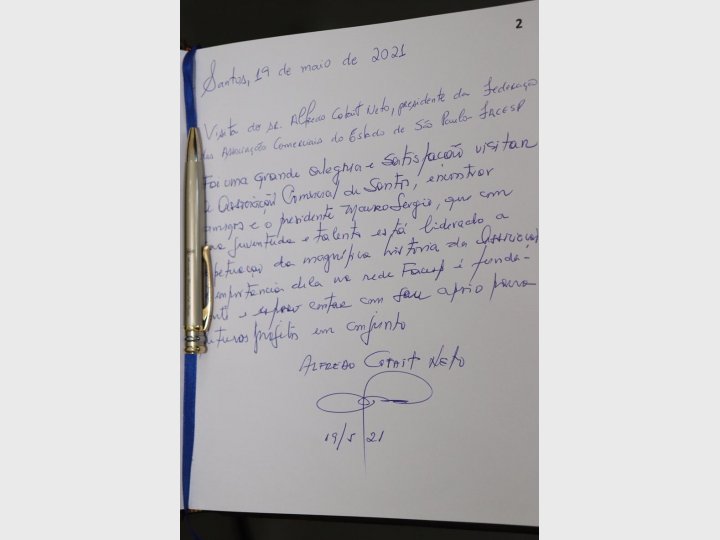 2
Santos, 19 de maio de 2021
Visita do Sr. Alfredo Cotait Neto, presidente da Federação
das Associações Comerciais do Estado de São Paulo - FACESP
Foi uma grande alegria e satisfação visitar
a Associação Comercial de Santos, encontrar
amigos e o presidente Mauro Sergio, que com
sua juventude e talento está liderado a
da magnifica historia da Associação
importância dela na rede Facesp é funda-
e espero contar com seu apoio para
futuros projetos em conjunto
ALFREDO COTAIT NETO
19/5/21